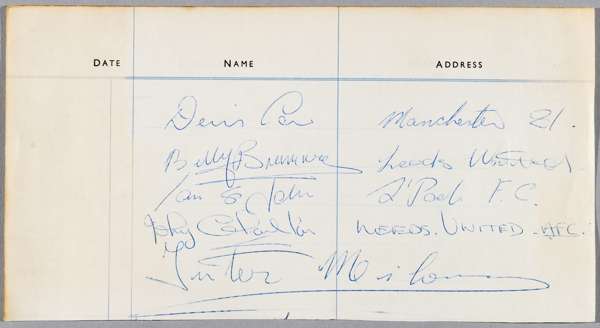 DATE NAME ADDRESS
Denis Law Manchester 21.
Billy Bremner Leeds United
Ian St John L'Pool F.C.
Charlton LEEDS. UNITED. AFC.
Inter Milan